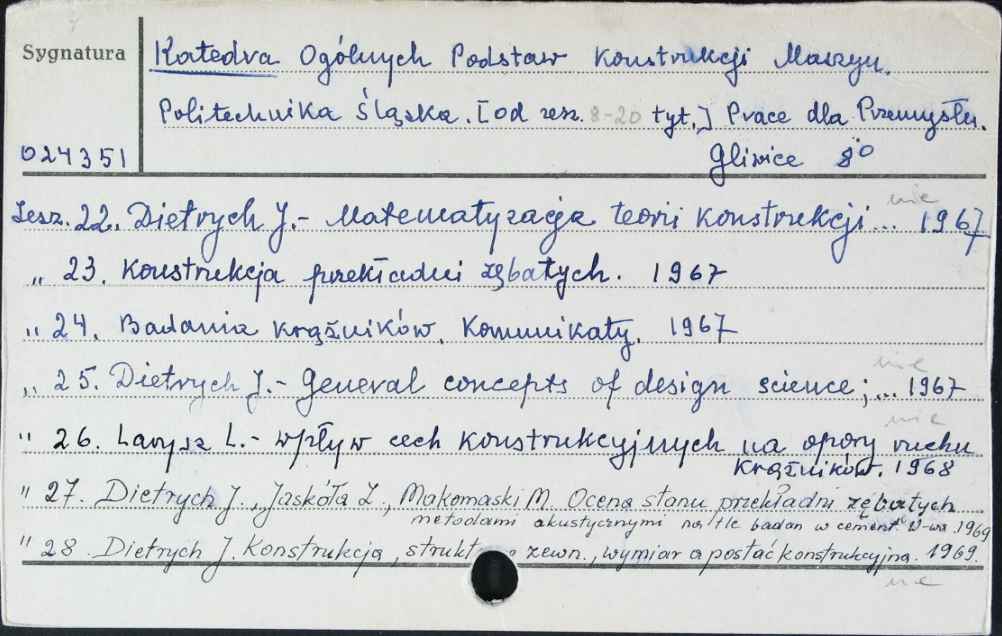 Sygnatura
Katedra Ogólnych Podstaw Konstrukcji Maszyn.
Politechnika Śląska. [od zesz. 8-20 tyt.] Prace dla Przemysłu.
024351
Gliwice 8°
nie
Zesz. 22. Dietrych J.- Matematyzacja teorii konstrukcji... 1967
„ 23. Konstrukcja przekładni zębatych. 1967
„ 24. Badania krążników. Komunikaty. 1967
nie
„ 25. Dietrych J.- General concepts of design science;... 1967
nie
" 26. Lawysz L.- Wpływ cech konstrukcyjnych na opory ruchu
krążników. 1968
" 27. Dietrych J., Jaskóła Z., Makomaski M. Ocena stanu przekładni zębatych
metodami akustycznymi na tle badań w cement. 1969
" 28. Dietrych J. Konstrukcja, zewn., wymiar a postać konstrukcyjna. 1969.
nie